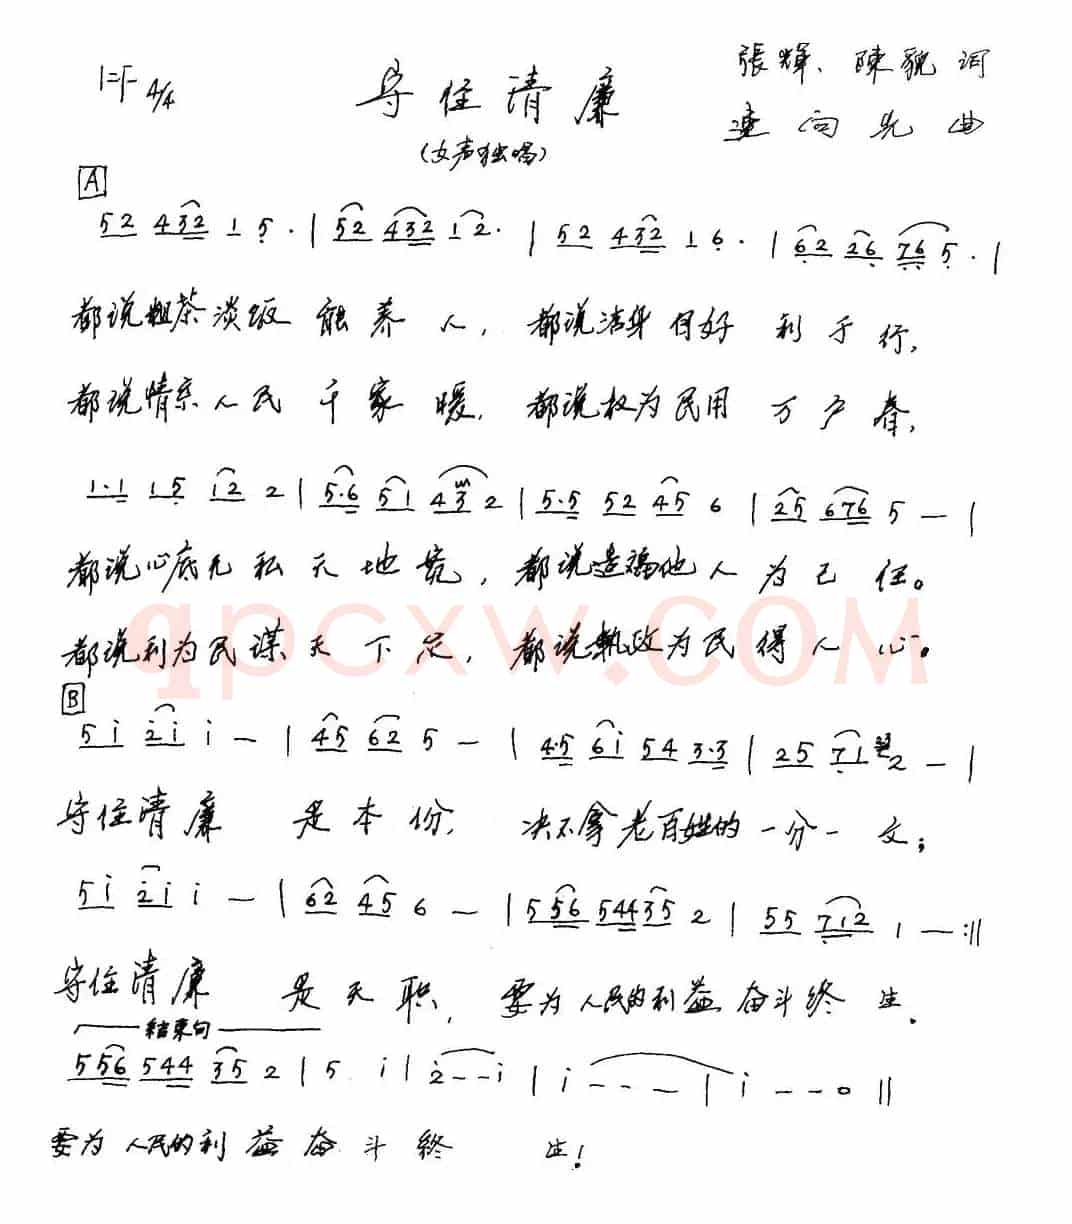 1=F 4/4
守住清廉
(女声独唱)
張輝、陳貌词
連向先曲
A
52 432 1 5· | 52 432 12· | 52 432 1 6· | 62 26 76 5· |
都说粗茶淡饭能养人，都说洁身自好利于行，
都说情系人民千家暖，都说权为民用万户春，
1·1 15 12 2 | 5·6 51 43 2 | 5·5 52 45 6 | 25 676 5 — |
都说心底无私天地宽，都说造福他人为己任。
都说利为民谋天下定，都说執政为民得人心。
B
5i 2i i — | 45 62 5 — | 4·5 6i 54 3·3 | 25 71 2 — |
守住清廉 是本份，决不拿老百姓的一分一文；
5i 2i i — | 62 45 6 — | 556 544 35 2 | 55 712 1 — :||
守住清廉 是天职，要为人民的利益奋斗终生.
结束句
556 544 35 2 | 5 i | 2 - - i | i - - — | i - - 0 ||
要为人民的利益奋斗终 生！
qpcxw.COM